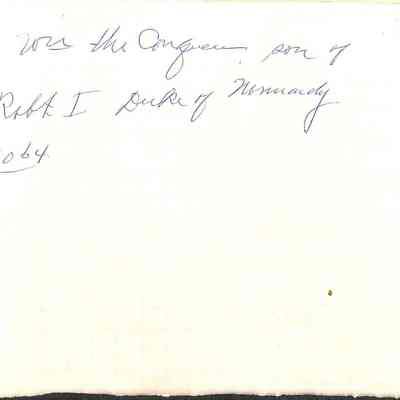 Wm the Conqueror, son of
Robt I Duke of Normandy
064